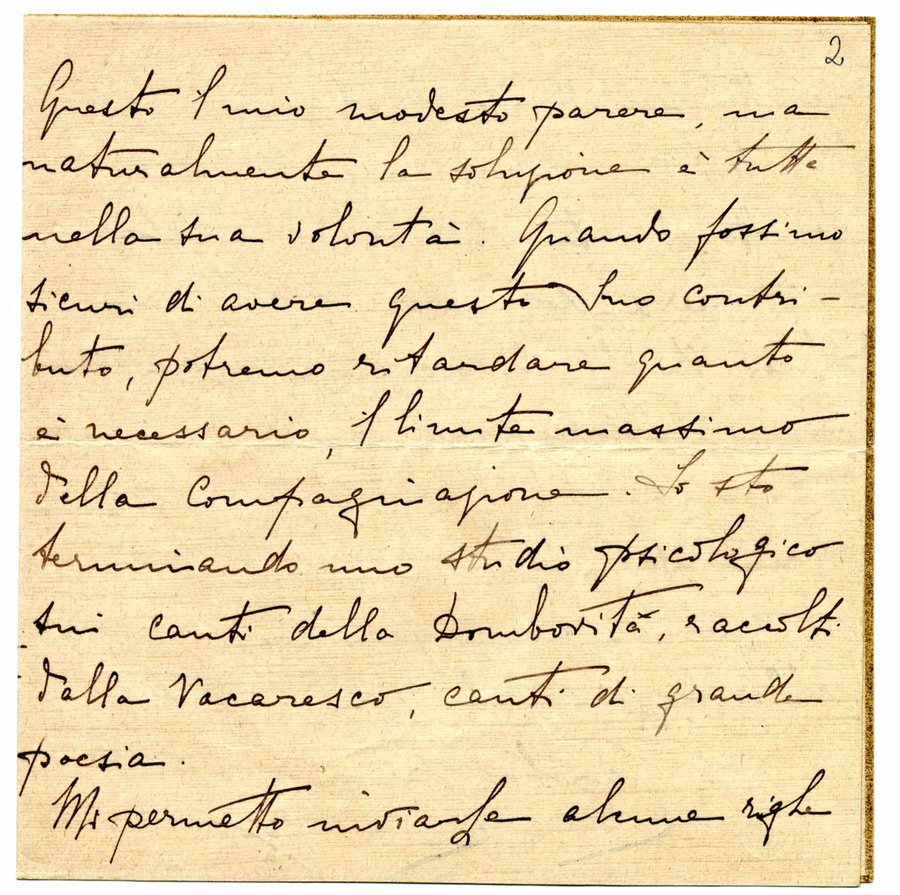 2
Questo il mio modesto parere, ma
naturalmente la soluzione è tutta
nella sua volontà. Quando fossimo
sicuri di avere questo Suo contri-
buto, potremo ritardare quanto
è necessario, il limite massimo
della compaginazione. Io sto
terminando uno studio psicologico
sui canti della Dombovità, raccolti
dalla Vacaresco, canti di grande
poesia.
Mi permetto inviarle alcune righe